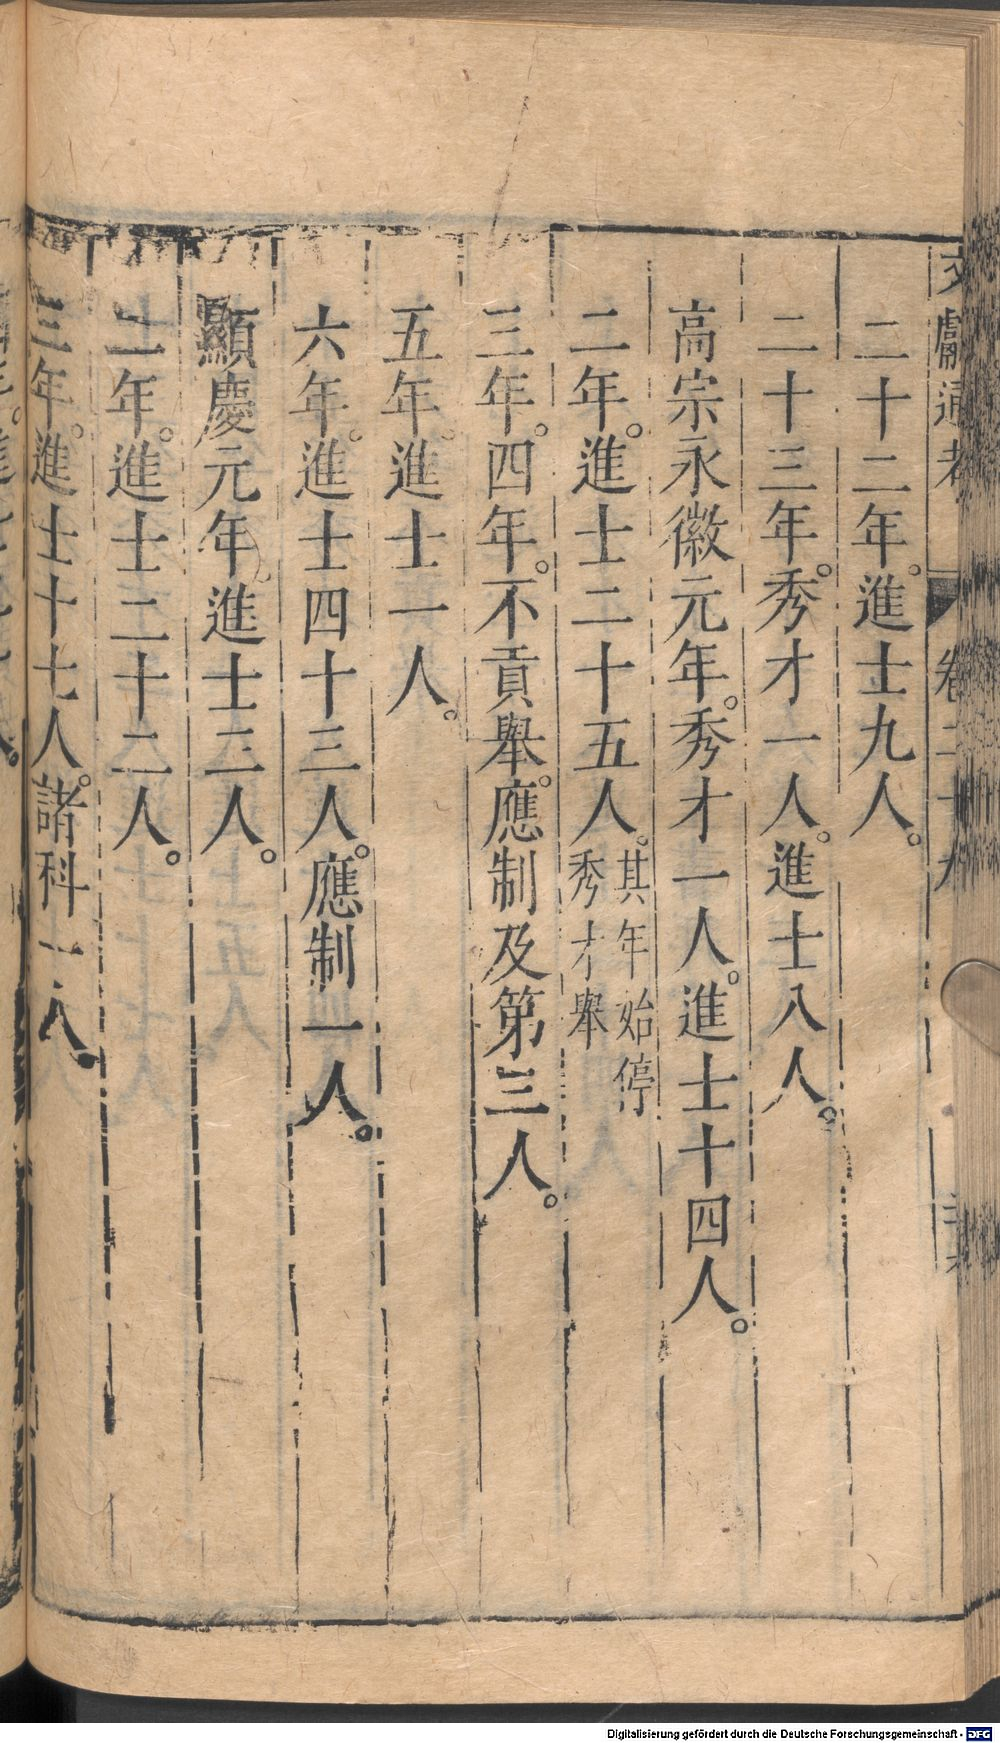 文獻通考 卷二十九
二十二年。進士九人。
二十三年。秀才一人。進士八人。
高宗永徽元年。秀才一人。進士十四人。
二年。進士二十五人。其年始停秀才舉
三年。四年。不貢舉。應制及第三人。
五年。進士一人。
六年。進士四十三人。應制一人。
顯慶元年。進士三人。
二年。進士二十二人。
三年。進士十七人。諸科一人。
Digitalisierung gefördert durch die Deutsche Forschungsgemeinschaft - DFG